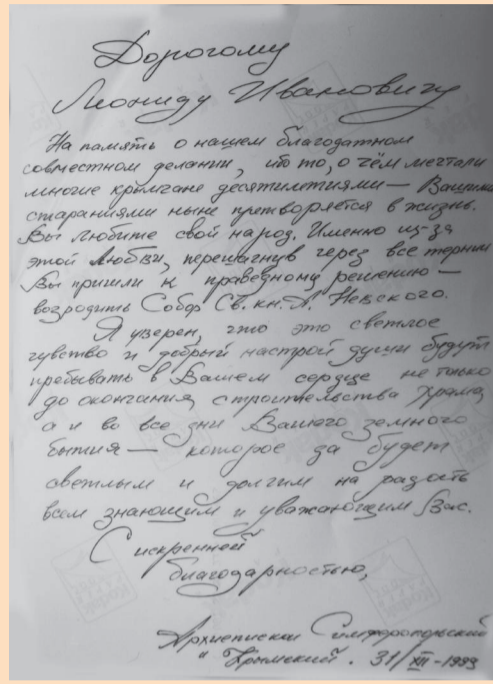 Дорогому
Леониду Ивановичу
На память о нашем благодатном
совместном делании, что то, о чём мечтали
многие крымчане десятилетиями — Вашими
стараниями ныне претворяется в жизнь.
Вы любите свой народ. Именно из-за
этой любви, перешагнув через все тернии
Вы пришли к праведному решению —
возродить Собор Св. кн. А. Невского.
Я уверен, что это светлое
чувство и добрый настрой души будут
пребывать в Вашем сердце не только
до окончания строительства Храма,
а и во все дни Вашего земного
бытия — которое да будет
светлым и долгим на радость
всем знающим и уважающим Вас.
С искренней
благодарностью,
Архиепископ Симферопольский
и Крымский. 31/XII-1999